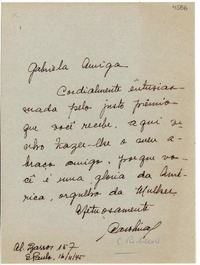 4586
Gabriela Amiga
Cordialmente entusias-
mada pelo justo prêmio
que você recebe, aqui
venho trazer-lhe o meu a-
braço amigo, porque vo-
cê é uma gloria da Amé-
rica, orgulho da Mulher.
Afetuosamente
Carolina
Al. Barros 157
S. Paulo, 16/11/45